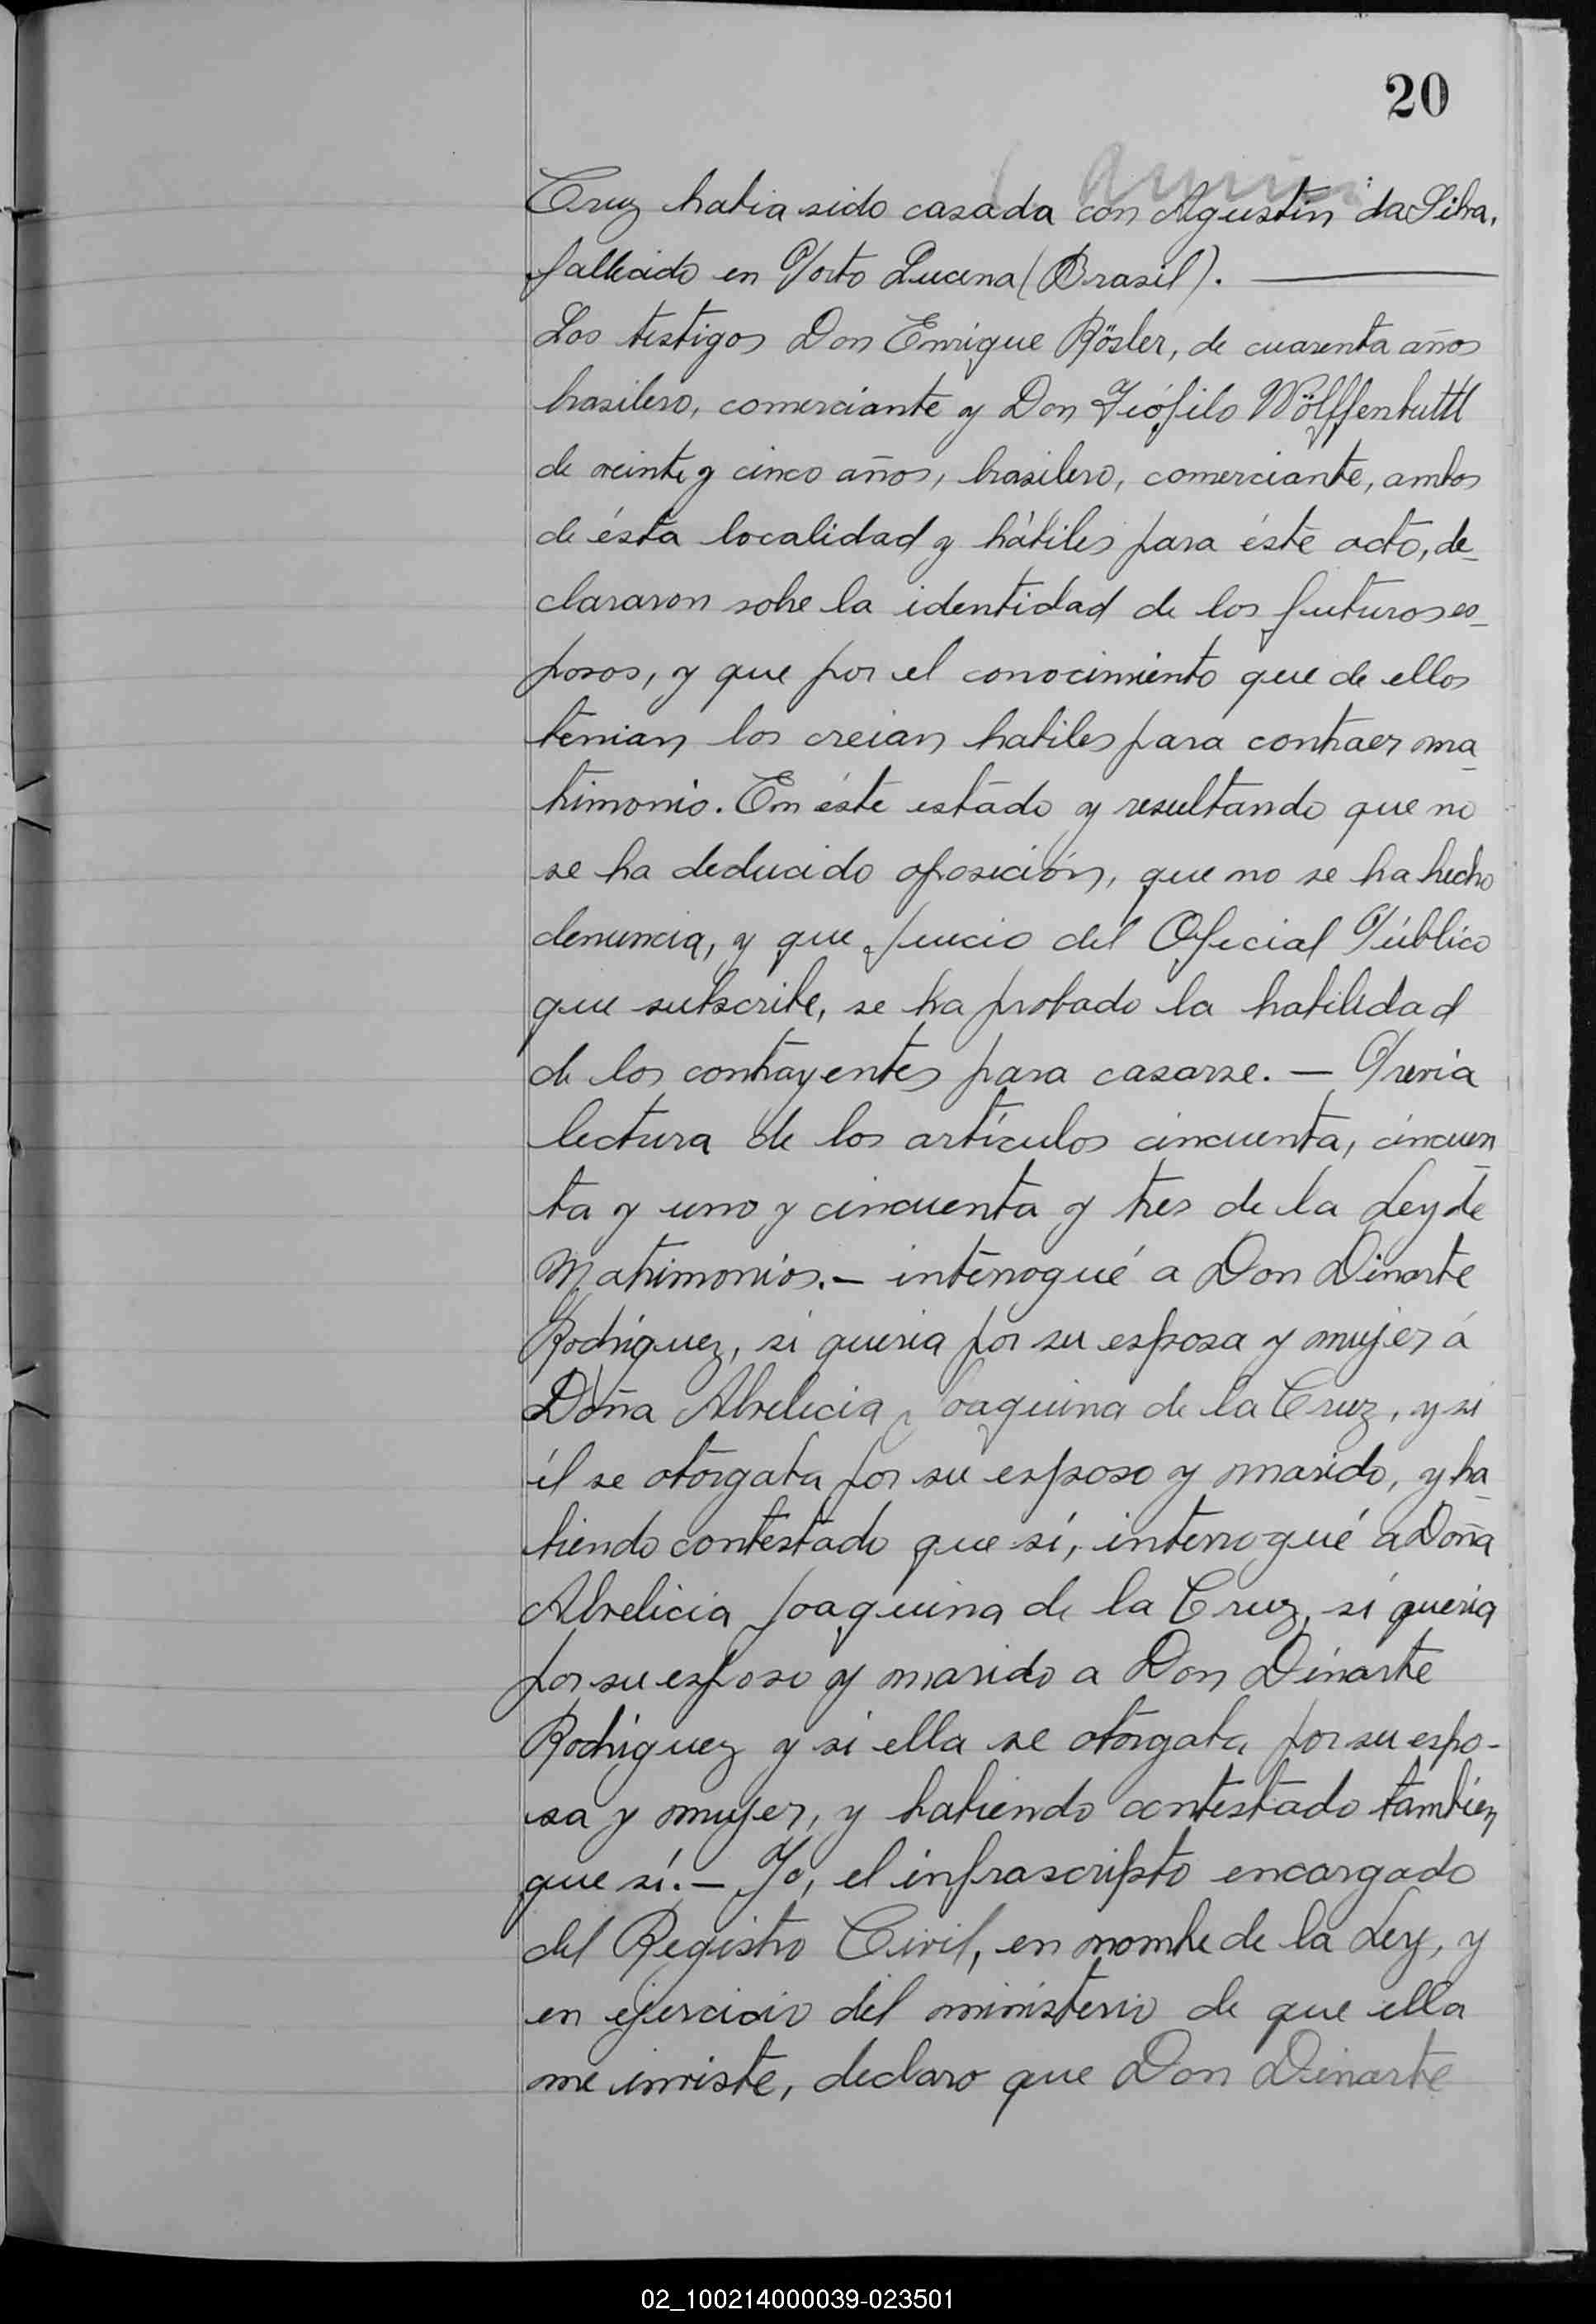 20
Cruz habia sido casada con Agustin da Silva,
fallecido en Porto Lucena (Brasil). —
Los testigos Don Enrique Rösler, de cuarenta años
brasilero, comerciante y Don Teófilo Wölffenbuttl
de veinte y cinco años, brasilero, comerciante, ambos
de ésta localidad y hábiles para éste acto, de_
clararon sobre la identidad de los futuros es_
posos, y que por el conocimiento que de ellos
tenian los creian habiles para contraer ma_
trimonio. En éste estado y resultando que no
se ha deducido oposición, que no se ha hecho
denuncia, y que juicio del Oficial Público
que subscribe, se ha probado la habilidad
de los contrayentes para casarse. — Previa
lectura de los artículos cincuenta, cincuen_
ta y uno y cincuenta y tres de la Ley de
Matrimonios. — interrogué a Don Dinarte
Rodriguez, si queria por su esposa y mujer á
Doña Abrelicia Joaquina de la Cruz, y si
él se otorgaba por su esposo y marido, y ha_
biendo contestado que sí, interrogué a Doña
Abrelicia Joaquina de la Cruz, si queria
por su esposo y marido a Don Dinarte
Rodriguez y si ella se otorgaba por su espo-
sa y mujer, y habiendo contestado tambien
que sí. — Yo, el infrascripto encargado
del Registro Civil, en nombre de la Ley, y
en ejercicio del ministerio de que ella
me inviste, declaro que Don Dinarte
02_100214000039-023501